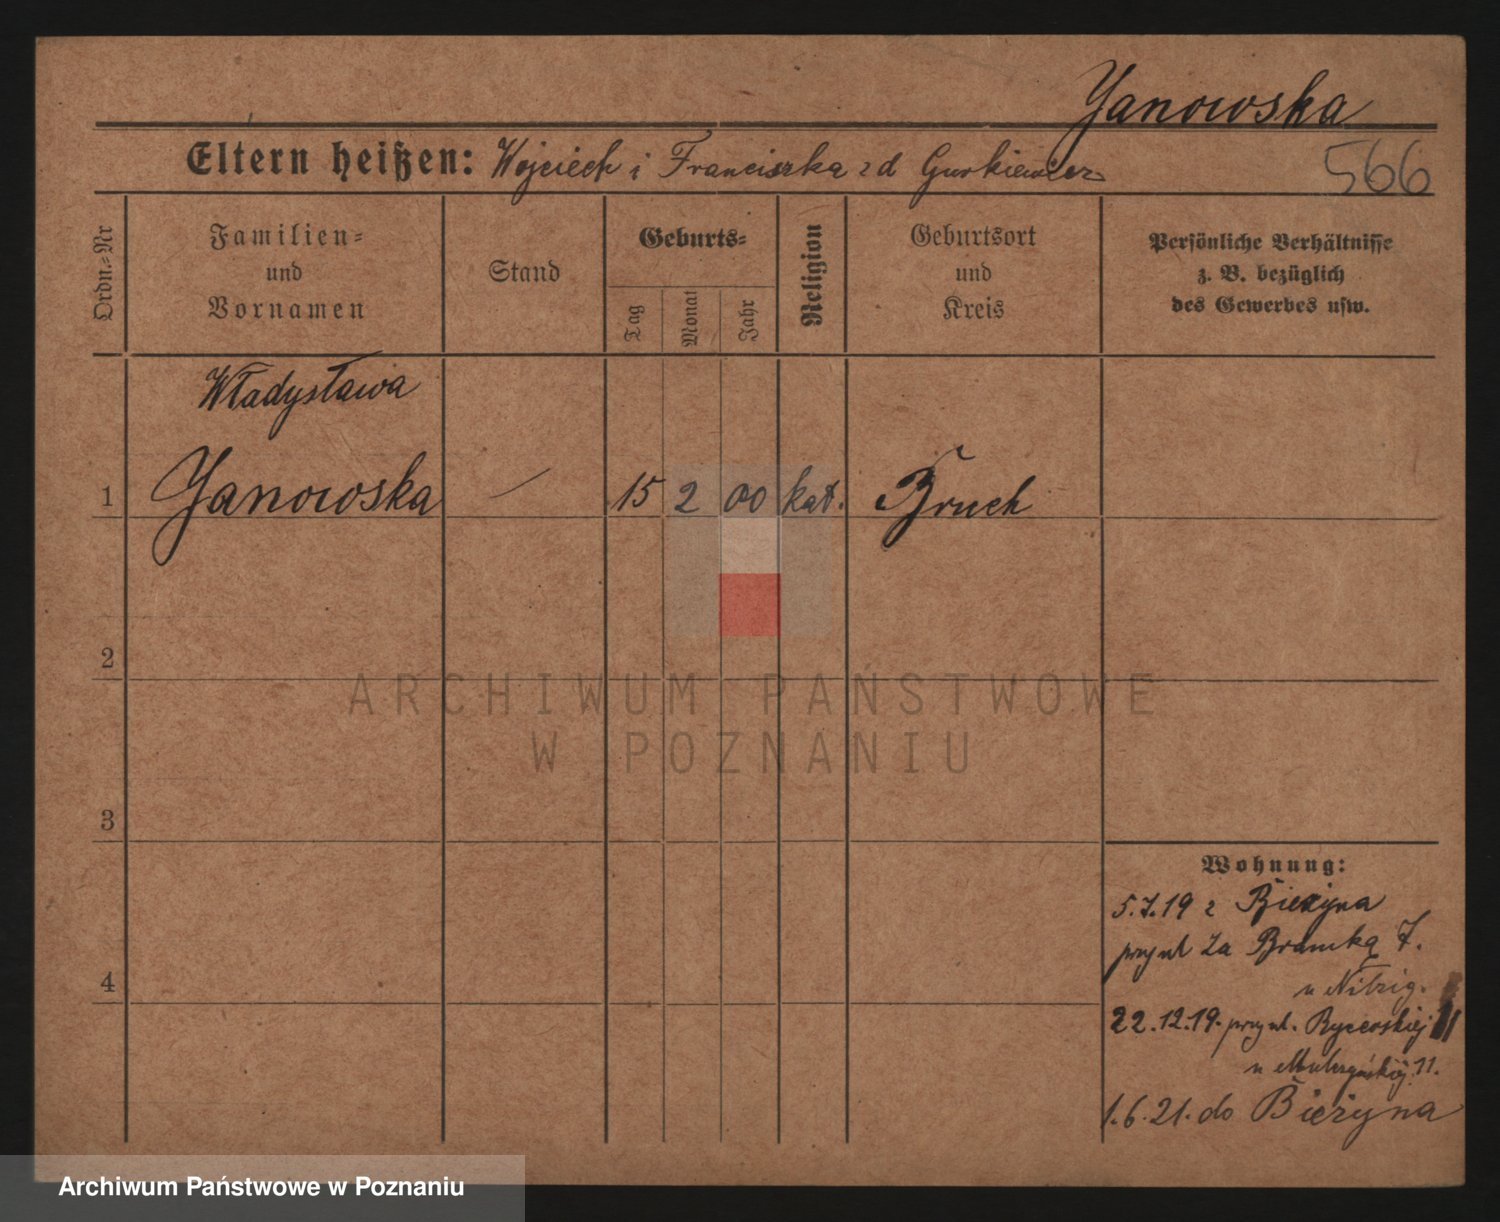 Yanowska
Eltern heißen: Wojciech i Franciszka z d Gurkiewicz
566
Ordn.-Nr
Familien-
und
Vornamen
Stand
Geburts-
Tag
Monat
Jahr
Religion
Geburtsort
und
Kreis
Persönliche Verhältnisse
z. B. bezüglich
des Gewerbes usw.
Władysława
1 Yanowska — 15 2 00 kat. Bruch
2
3
4
ARCHIWUM PAŃSTWOWE
W POZNANIU
Wohnung:
5.7.19 z Bieżyna
przy ul Za Bramką 7.
u Nitzig.
22.12.19. przy ul. Rycerskiej 11
u 11.
1.6.21. do Bieżyna
Archiwum Państwowe w Poznaniu